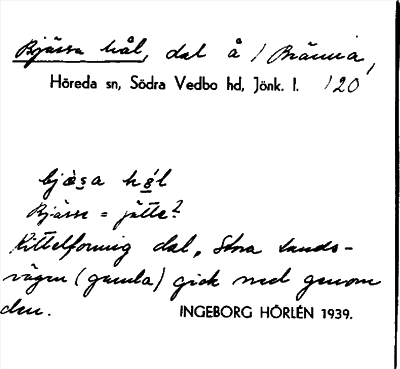 Bjässa hål, dal å / Bränna,
Höreda sn, Södra Vedbo hd, Jönk. l. 120
bjæ̀sa hǻl
Bjässe = jätte?
Kittelformig dal, Stora lands-
vägen (gamla) gick ned genom
den.
INGEBORG HÖRLÉN 1939.